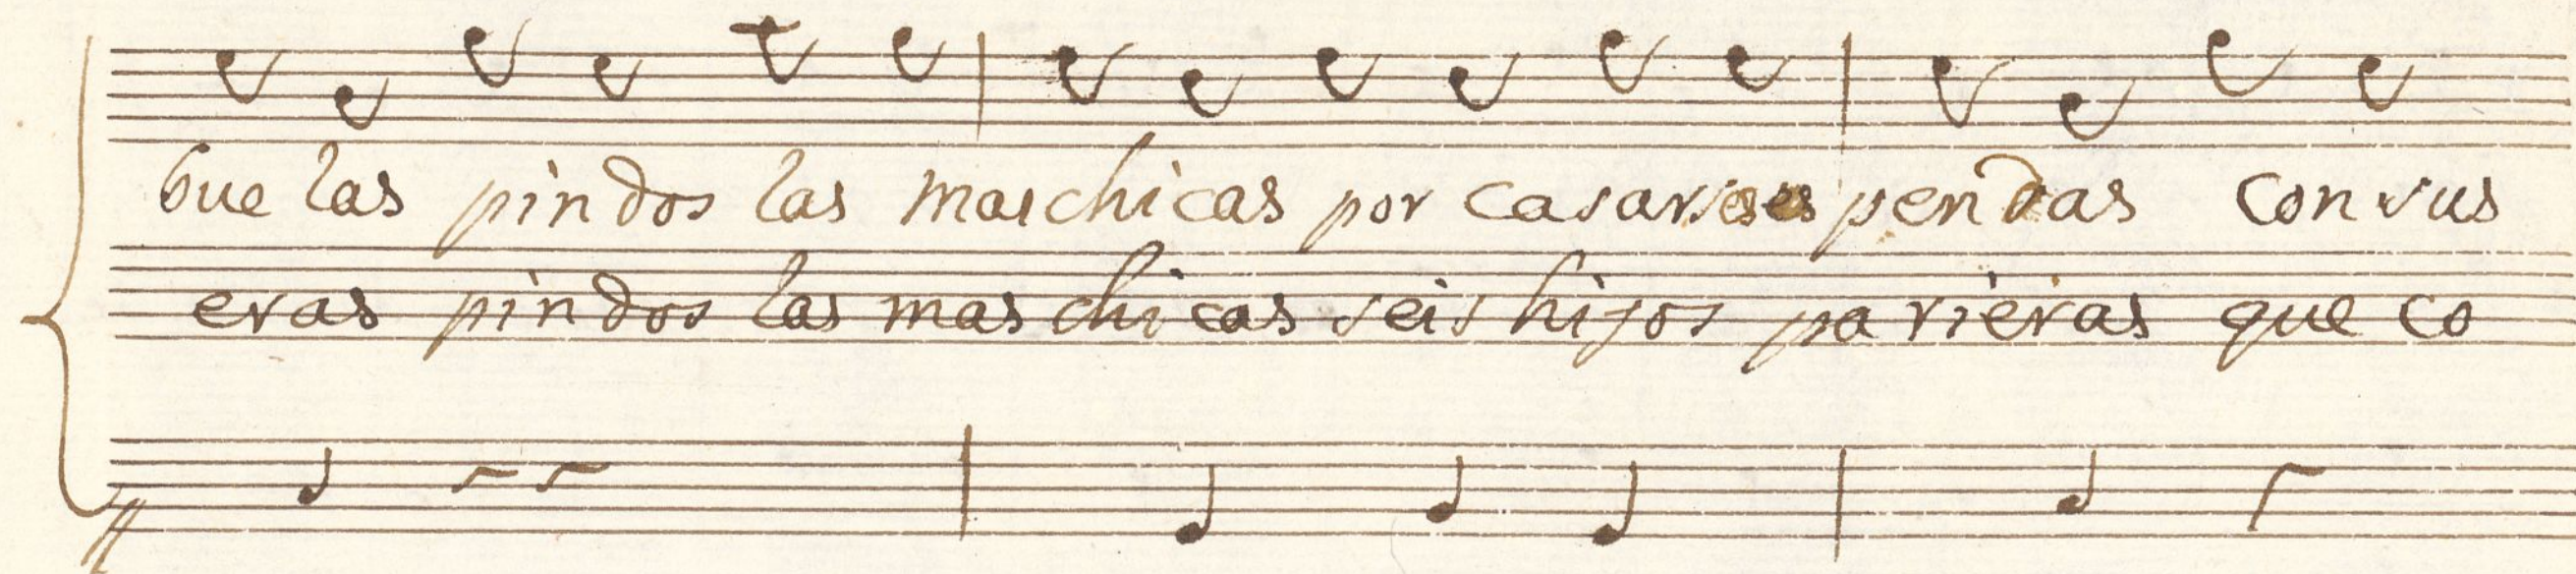 buelas pin dos las mas chicas por casarse es pen das con sus
eras pin dos las mas chicas seis hijos pa rieras que co